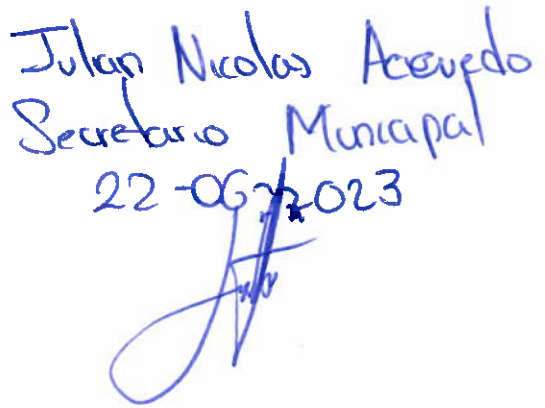 Julian Nicolas Acevedo
Secretario Municipal
22-06-2023